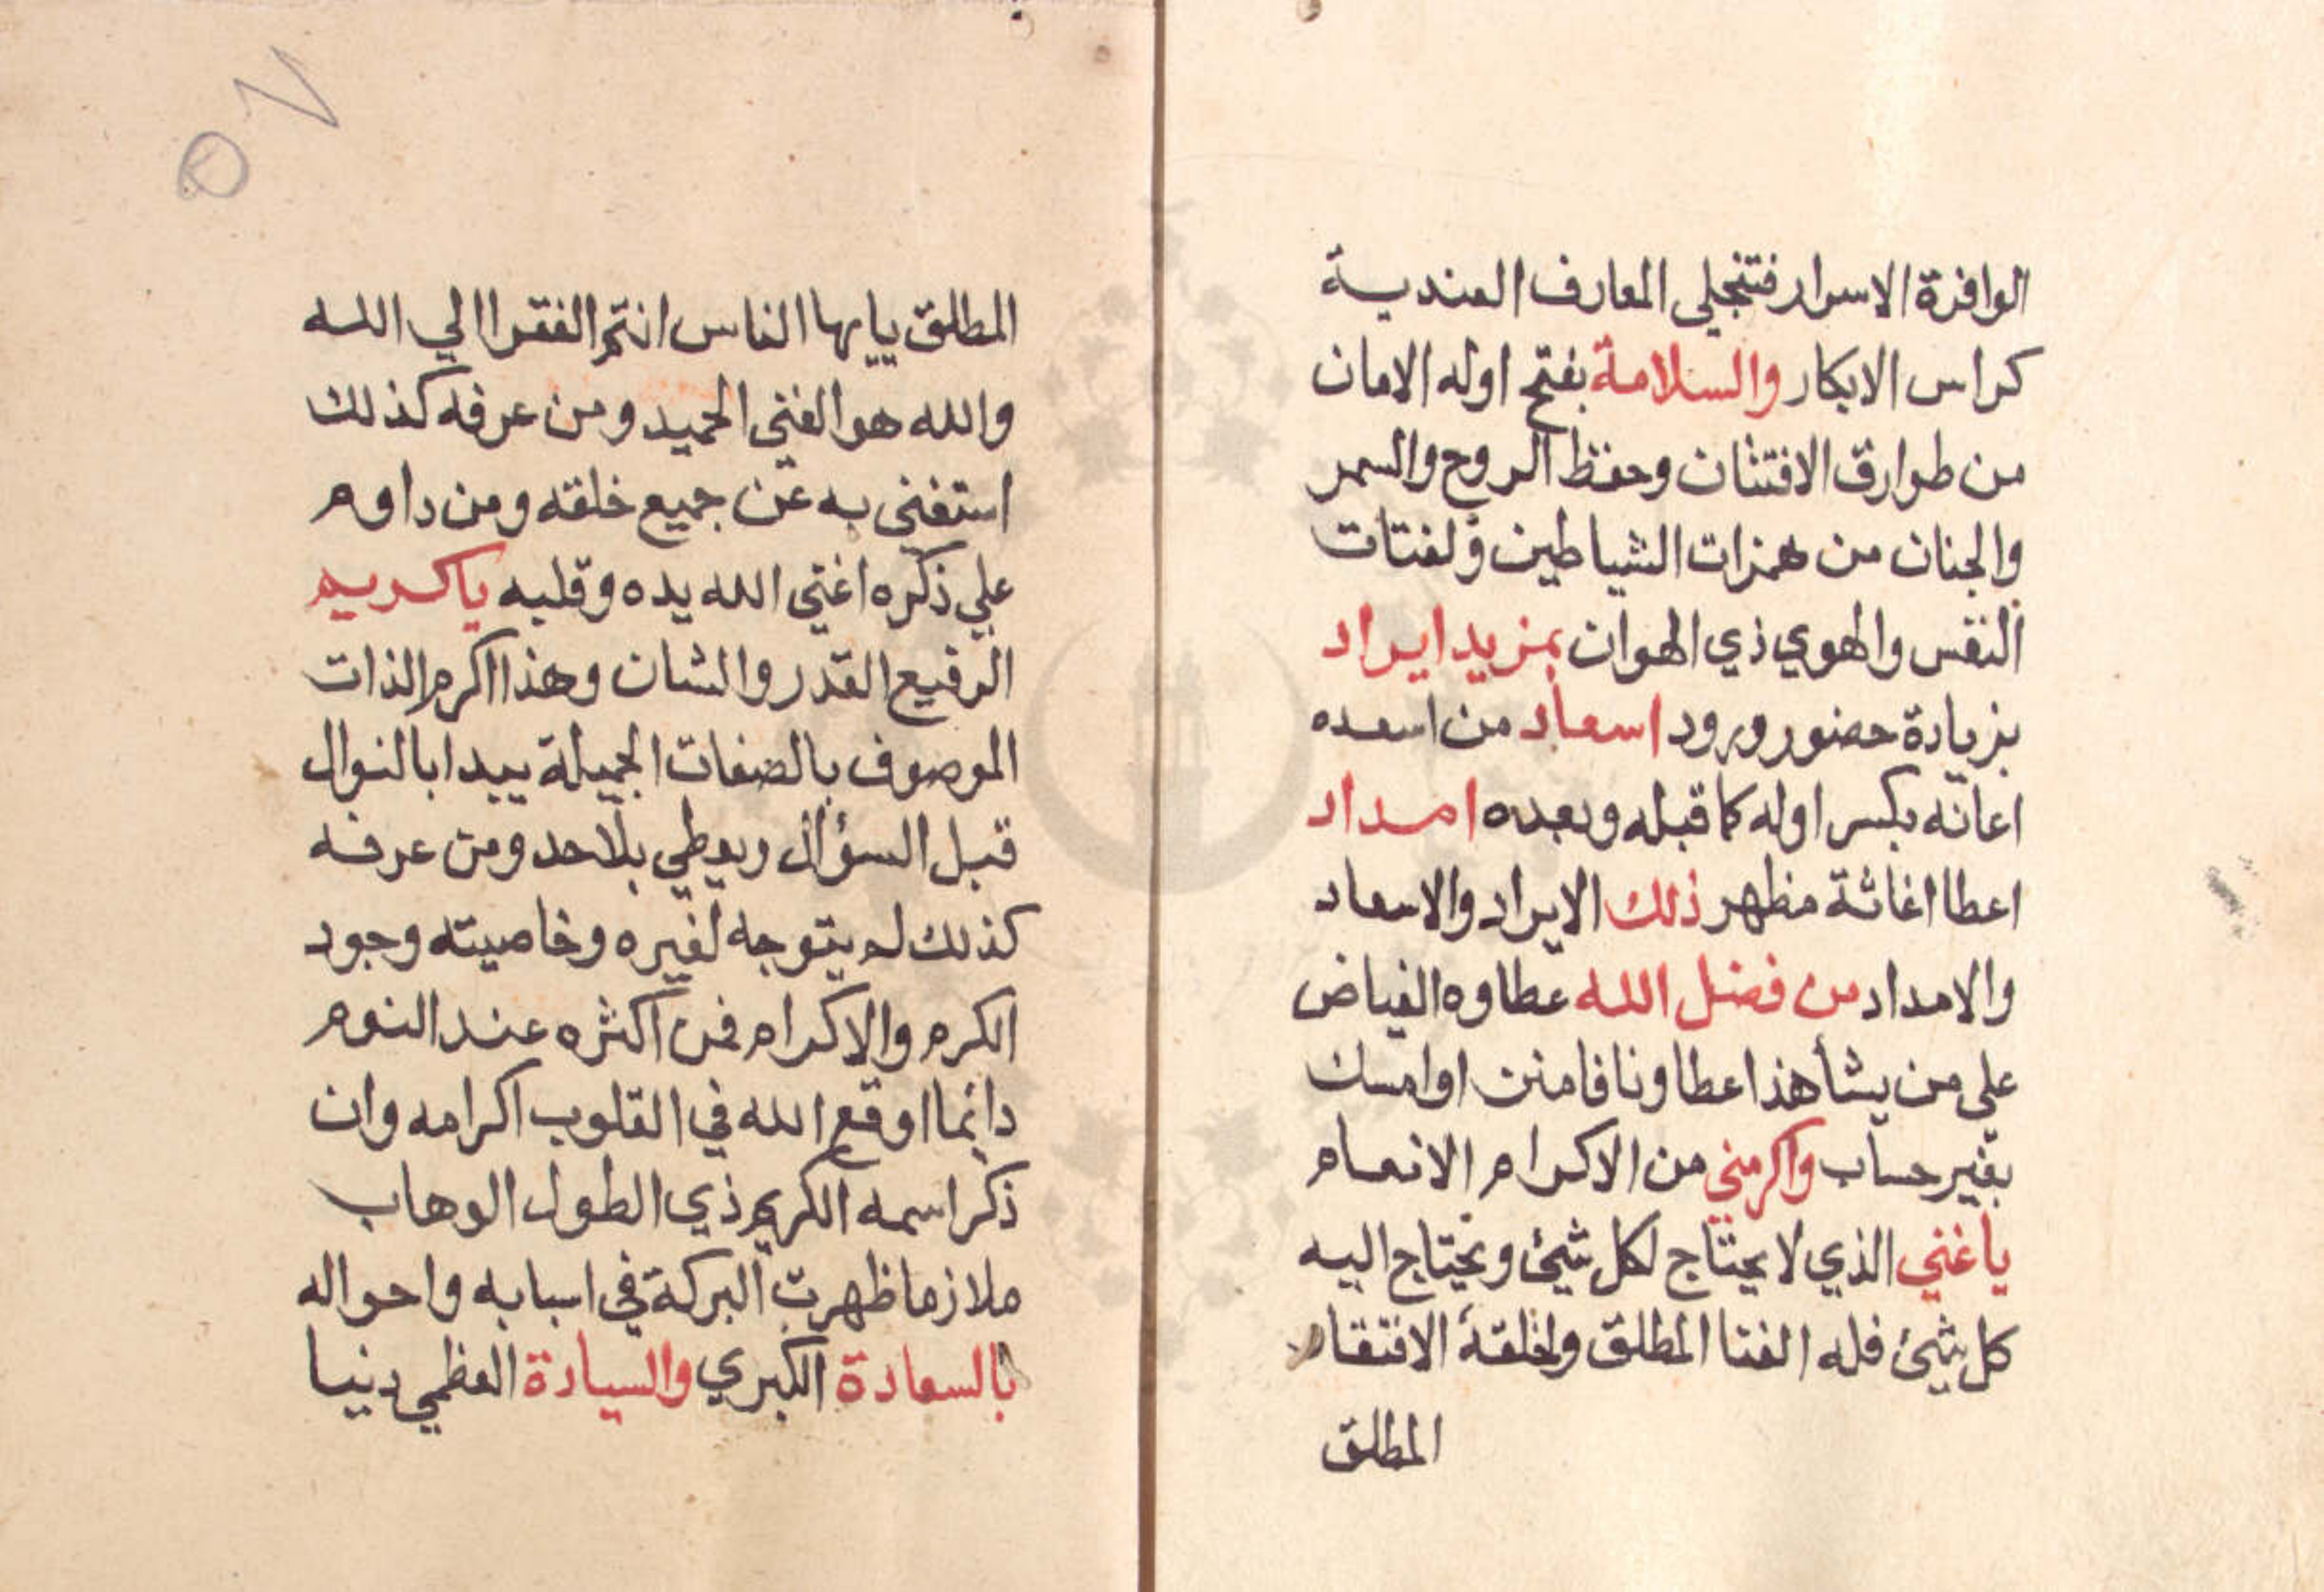 الوافرة الاسرار فتنجلي المعارف العندية
كراس الابكار والسلامة بفتح اوله الامان
من طوارق الافتتان وحفظ الروح والسر
والجنان من همزات الشياطين ولفتات
النفس والهوي ذي الهوان بمزيد ايراد
بزيادة حضور وورود اسعاد من اسعده
اعانه بكسر اوله كما قبله وبعده امداد
اعطا اغاثة مظهر ذلك الايراد والاسعاد
والامداد من فضل الله عطاوه الفياض
علي من يشأ هذا عطاونا فامنن او امسك
بغير حساب واكرمني من الاكرام الانعام
يا غني الذي لا يحتاج لكل شيئ ويحتاج اليه
كل شيئ فله الغنا المطلق ولخلقه الافتقار
المطلق
٥٧
المطلق ياايها الناس انتم الفقرا الي الله
والله هو الغني الحميد ومن عرفه كذلك
استغني به عن جميع خلقه ومن داوم
علي ذكره اغني الله يده وقلبه يا كريم
الرفيع القدر والشان وهذا اكرم الذات
الموصوف بالصفات الجميلة يبدا بالنوال
قبل السؤال ويعطي بلا حد ومن عرفه
كذلك لم يتوجه لغيره وخاصيته وجود
الكرم والاكرام فمن اكثره عند النوم
دائما اوقع الله في القلوب اكرامه وان
ذكر اسمه الكريم ذي الطول الوهاب
ملازما ظهرت البركة في اسبابه واحواله
بالسعادة الكبري والسيادة العظمي دنيا